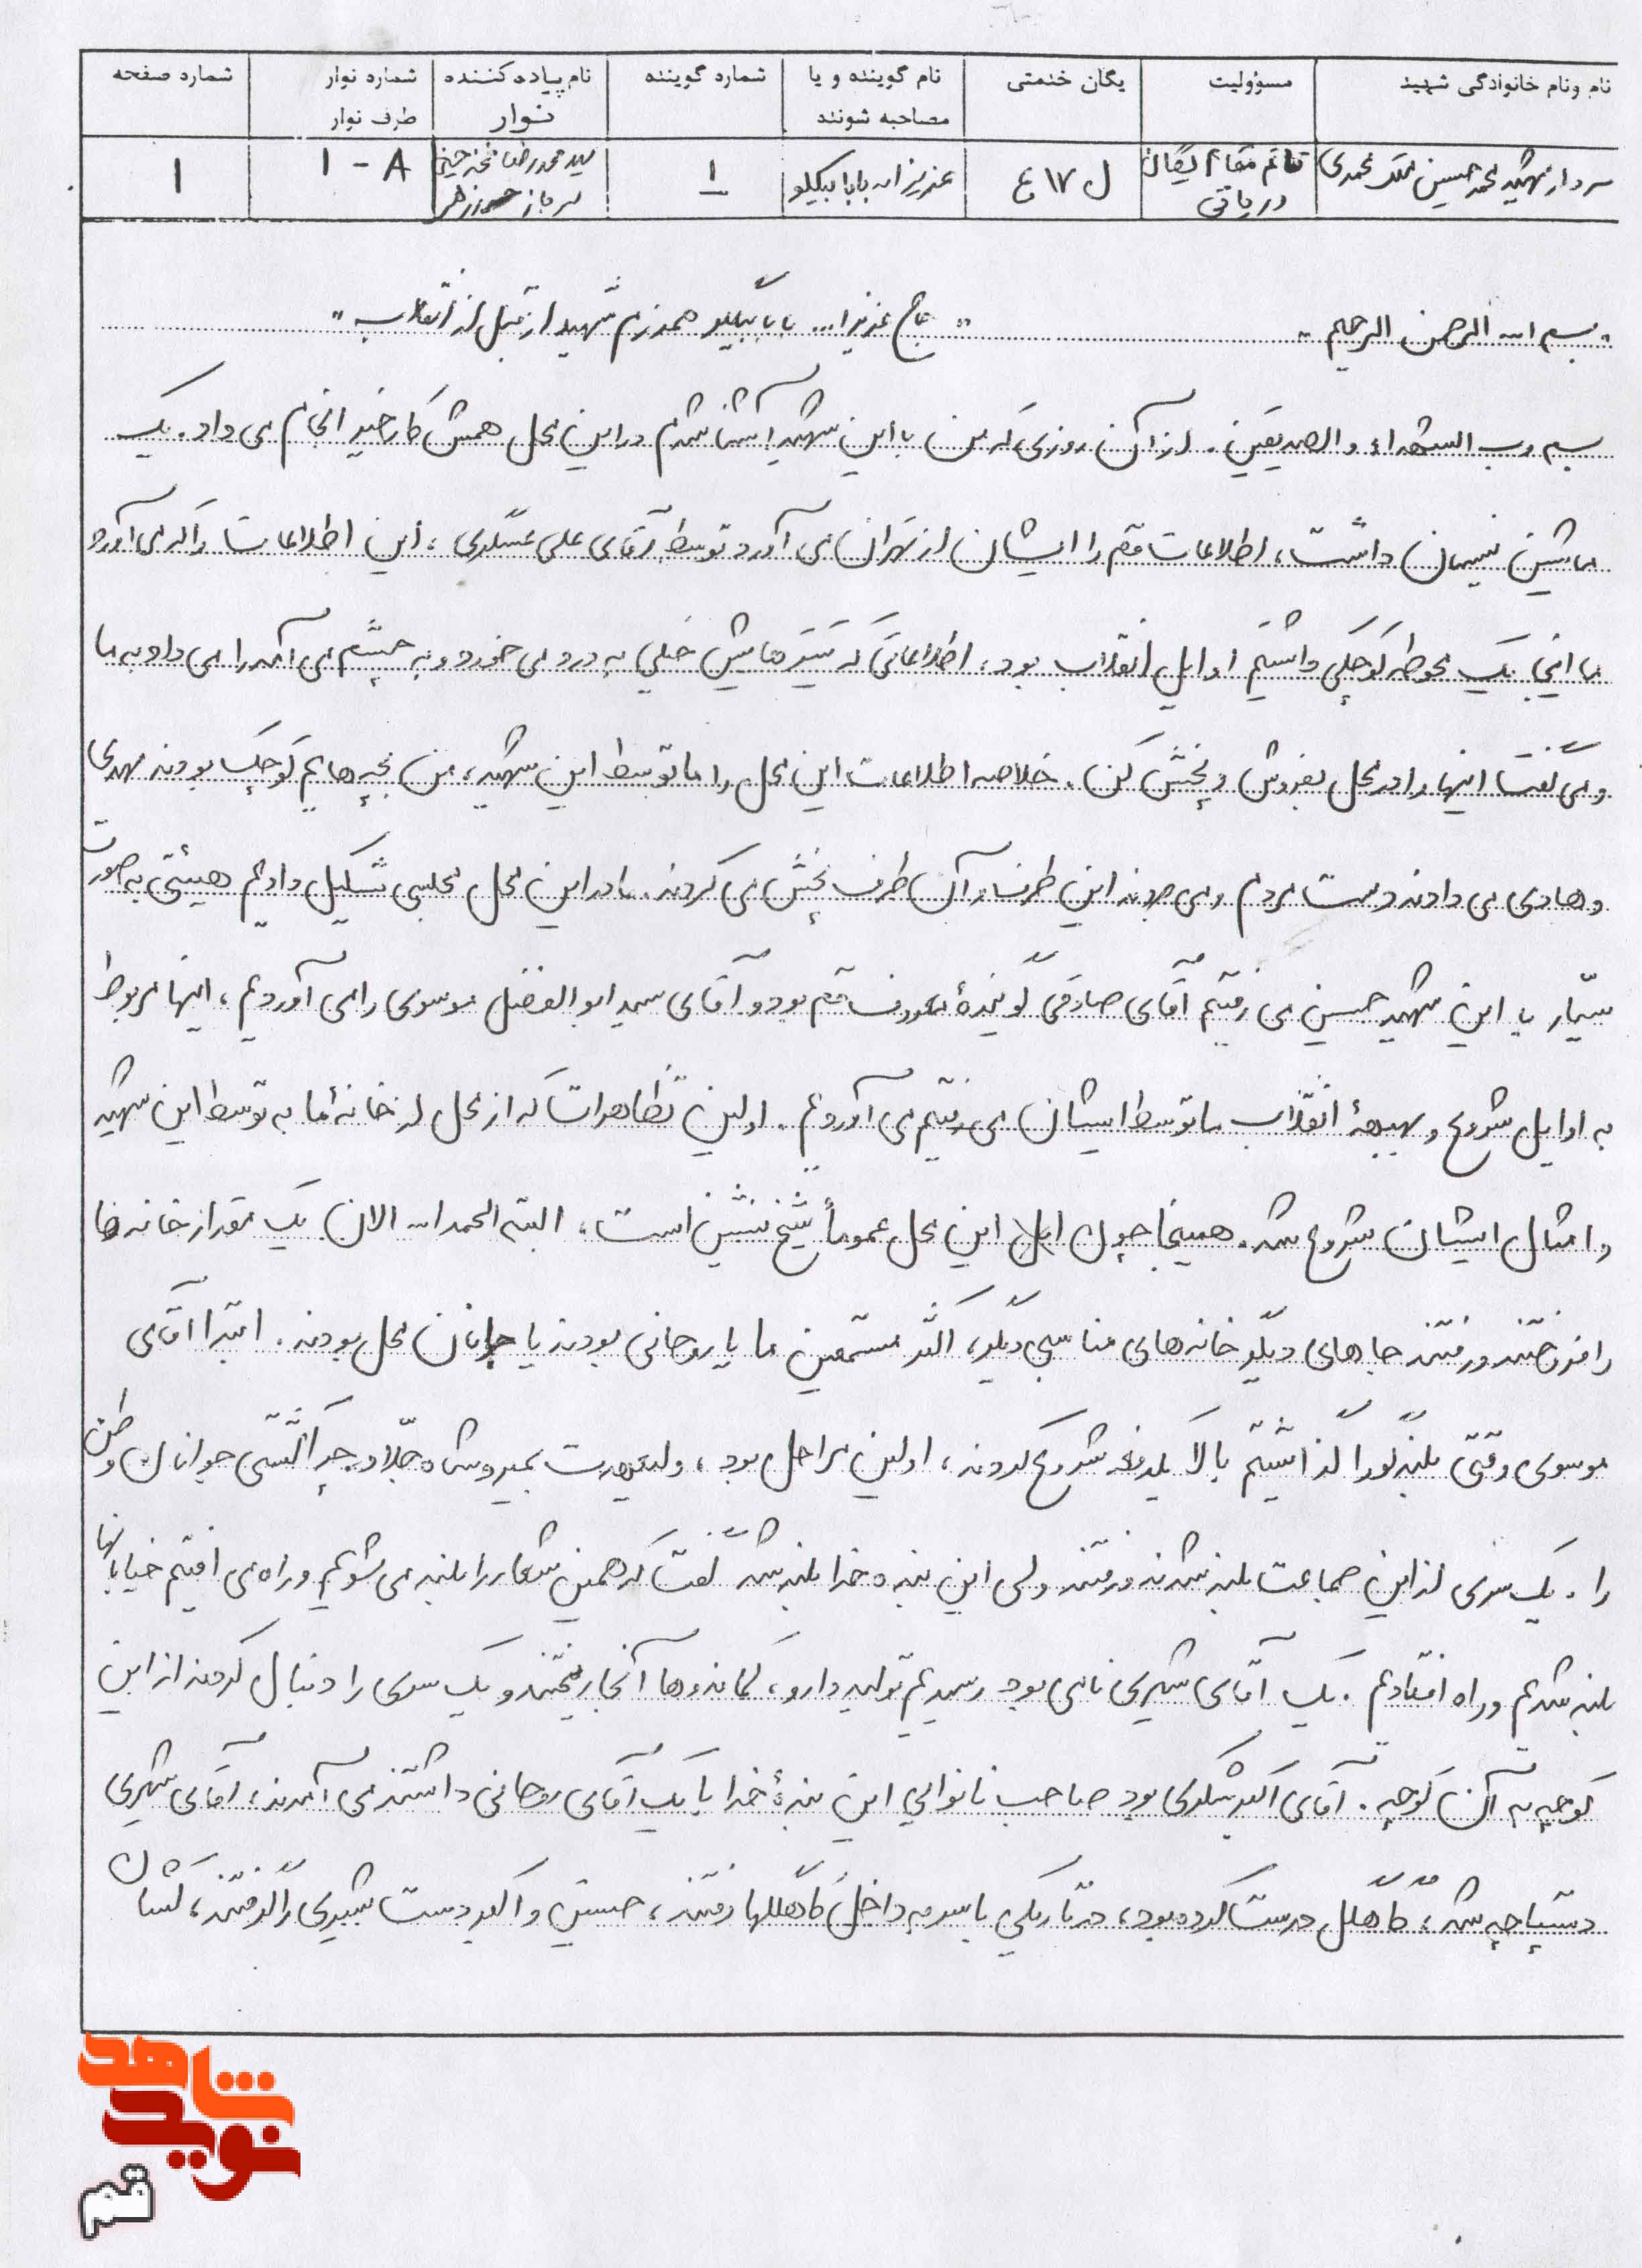 نام ونام خانوادگی شهید
مسؤولیت
یگان خدمتی
نام گوینده و یا مصاحبه شونند
شماره گوینده
نام پیاده کننده نوار
شماره نوار
طرف نوار
شماره صفحه
سردار شهید محمد حسین ملک محمدی
قائم مقام یگان دریائی
ل ۱۷ ع
عزیز اله بابا بیگلو
۱
سید محمد رضا
سرباز
۱ - A
۱
" بسم اله الرحمن الرحیم " " حاج عزیز ا... بابا بیگلو همرزم شهید از قبل از انقلاب "
بسم رب الشهداء والصدیقین. از آن روزی که من با این شهید آشنا شدم در این محل همش کار خیر انجام می داد. یک
ماشین نیسان داشت، اطلاعات قم را ایشان از تهران می آورد توسط آقای علی عسگری، این اطلاعات را که می آورد
ما اینجا یک محوطه کوچکی داشتیم اوایل انقلاب بود، اطلاعاتی که تیترهایش خیلی به درد می خورد و به چشم می آمد را می داد به ما
و می گفت اینها را در محل بفروش و پخش کن. خلاصه اطلاعات این محل را ما توسط این شهید، من بچه هایم کوچک بودند مهدی
و هادی می دادند دست مردم و می بردند این طرف و آن طرف پخش می کردند. ما در این محل مجلسی تشکیل دادیم هیئتی به صورت
سیّار با این شهید حسین می رفتیم آقای صادقی گویندۀ معروف قم بود و آقای سید ابوالفضل موسوی را می آوردیم، اینها مربوط
به اوایل شروع و بهبهۀ انقلاب ما توسط ایشان می رفتیم می آوردیم. اولین تظاهرات که از محل از خانۀ ما به توسط این شهید
و امثال ایشان شروع شد. همینجا چون این محل عموماً شیخ نشین است، البته الحمداله الان یک مقدار خانه ها
را فروختند و رفتند جاهای دیگر خانه های مناسبی دیگر، اکثر مستمعین ما یا روحانی بودند یا جوانان محل بودند. ابتدا آقای
موسوی وقتی بلندگو را گذاشتیم بالا یکدفعه شروع کردند، اولین مراحل بود، ولیعهدت بمیرد شاه جلّاد چرا کشتی جوانان وطن
را. یک سری از این جماعت بلند شدند و رفتند ولی این بنده خدا بلند شد گفت که همین شعار را بلند می شویم و راه می افتیم خیابانها
بلند شدیم و راه افتادیم. یک آقای شیری نامی بود رسیدیم تولید دارو، کماندوها آنجا ریختند و یک سری را دنبال کردند از این
کوچه به آن کوچه. آقای اکبر شکری بود صاحب نانوایی این بندۀ خدا با یک آقای روحانی داشتند می آمدند، آقای شیری
دستپاچه شد، کاهگل درست کرده بود، در تاریکی با سر به داخل کاهگلها رفتند، حسین و اکبر دست شیری را گرفتند، کشان
شاهد
نوید
قم